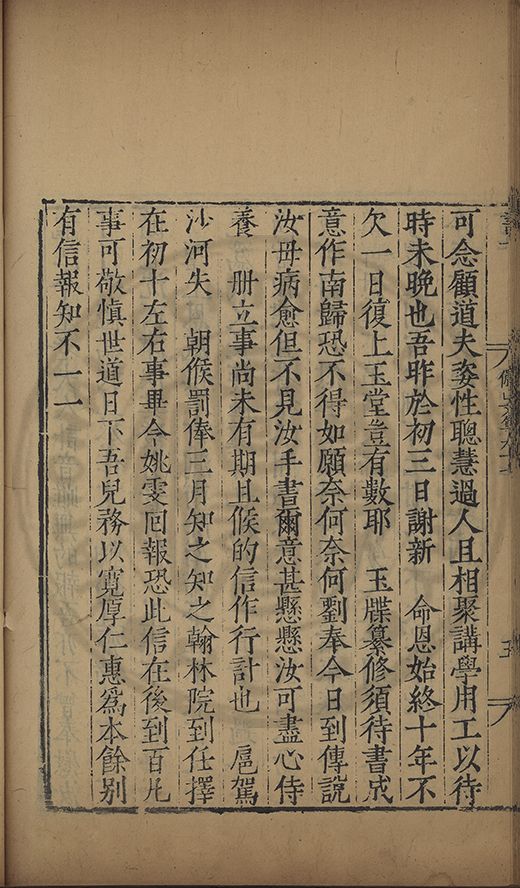 可念顧道夫姿性聰慧過人且相聚講學用工以待
時未晚也吾昨於初三日謝新　命恩始終十年不
欠一日復上玉堂豈有數耶　玉牒纂修須待書成
意作南歸恐不得如願奈何奈何劉奉今日到傳說
汝母病愈但不見汝手書爾意甚懸懸汝可盡心侍
養　冊立事尚未有期且候的信作行計也　扈駕
沙河失　朝候罰俸三月知之知之翰林院到任擇
在初十左右事畢今姚雯回報恐此信在後到百凡
事可敬慎世道日下吾兒務以寬厚仁惠為本餘別
有信報知不一一